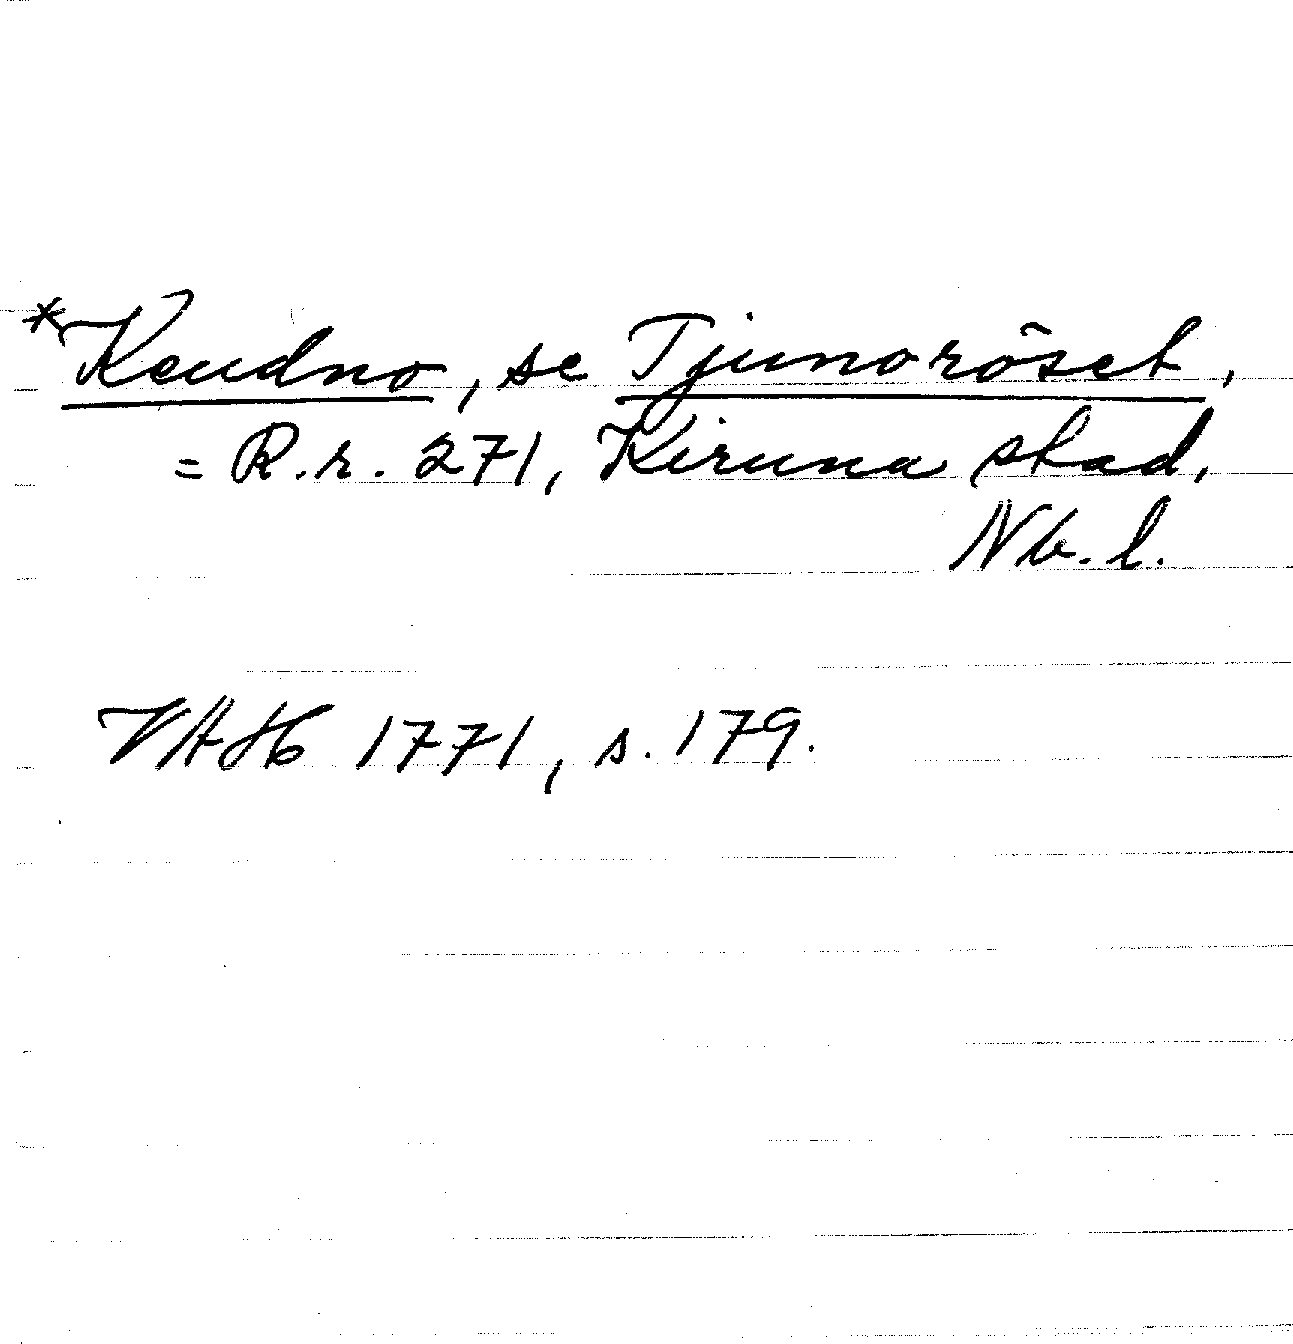 *Keudno, se Tjunoröset,
= R.r. 271, Kiruna stad,
Nb.l.
VAH 1771, s. 179.